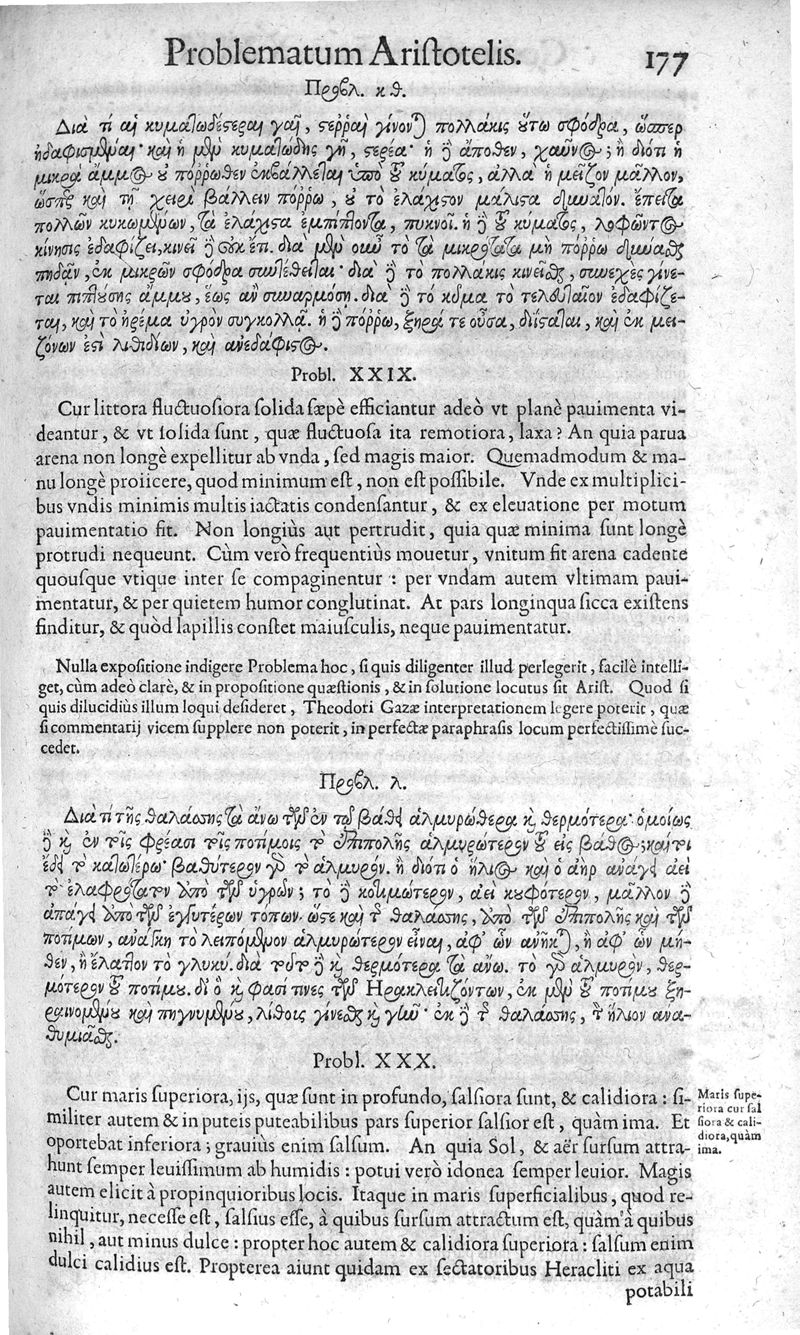 Problematum Aristotelis. 177
Προβλ. κθ.
Διὰ τί αἱ κυματωδέστεραι γαῖ, στερραὶ γίνονται πολλάκις οὕτω σφόδρα, ὥσπερ
ἠδαφισμέναι· καὶ ἡ μὲν κυματώδης γῆ, στερεά· ἡ δὲ ἄποθεν, χαῦνος; ἢ διότι ἡ
μικρὰ ἄμμος οὐ πόρρωθεν ἐκβάλλεται ὑπὸ τοῦ κύματος, ἀλλὰ ἡ μεῖζον μᾶλλον,
ὥσπερ καὶ τῇ χειρὶ βάλλειν πόρρω, οὐ τὸ ἐλάχιστον μάλιστα δυνατόν. ἔπειτα
πολλῶν κυκωμένων, τὰ ἐλάχιστα ἐμπίπτοντα, πυκνοῖ. ἡ δὲ τοῦ κύματος,
κίνησις ἐδαφίζει, κινεῖ δὲ οὐκ ἔτι. διὰ μὲν οὖν τὸ τὰ μικρότατα μὴ πόρρω δύνασθαι
πηδᾶν, ἐκ μικρῶν σφόδρα συντέθειται· διὰ δὲ τὸ πολλάκις κινεῖσθαι, συνεχὲς γίνε-
ται πιπτούσης ἄμμου, ἕως ἂν συναρμόσῃ. διὰ δὲ τό κῦμα τὸ τελευταῖον ἐδαφίζε-
ται, καὶ τὸ ἠρέμα ὑγρὸν συγκολλᾷ. ἡ δὲ πόρρω, ξηρά τε οὖσα, διίσταται, καὶ ἐκ μει-
ζόνων ἐστὶ λιθιδίων, καὶ ἀνεδάφιστος.
Probl. XXIX.
Cur littora fluctuosiora solida sæpè efficiantur adeò vt planè pauimenta vi-
deantur, & vt solida sunt, quæ fluctuosa ita remotiora, laxa? An quia parua
arena non longè expellitur ab vnda, sed magis maior. Quemadmodum & ma-
nu longè proiicere, quod minimum est, non est possibile. Vnde ex multiplici-
bus vndis minimis multis iactatis condensantur, & ex eleuatione per motum
pauimentatio fit. Non longiùs aut pertrudit, quia quæ minima sunt longè
protrudi nequeunt. Cùm verò frequentiùs mouetur, vnitum fit arena cadente
quousque vtique inter se compaginentur : per vndam autem vltimam paui-
mentatur, & per quietem humor conglutinat. At pars longinqua sicca existens
finditur, & quòd lapillis constet maiusculis, neque pauimentatur.
Nulla expositione indigere Problema hoc, si quis diligenter illud perlegerit, facilè intelli-
get, cùm adeò clarè, & in propositione quæstionis, & in solutione locutus sit Arist. Quod si
quis dilucidiùs illum loqui desideret, Theodori Gazæ interpretationem legere poterit, quæ
si commentarij vicem supplere non poterit, in perfectæ paraphrasis locum perfectissimè suc-
cedet.
Προβλ. λ.
Διὰ τί τῆς θαλάσσης τὰ ἄνω τῶν ἐν τῷ βάθει ἁλμυρώτερα καὶ θερμότερα· ὁμοίως
δὲ καὶ ἐν τοῖς φρέασι τοῖς ποτίμοις τὸ ἐπιπολῆς ἁλμυρώτερον τοῦ εἰς βάθος; καίτοι
ἔδει τὸ κατωτέρω· βαθύτερον γὰρ τὸ ἁλμυρόν. ἢ διότι ὁ ἥλιος καὶ ὁ ἀὴρ ἀνάγει ἀεὶ
τὸ ἐλαφρότατον ἀπὸ τῶν ὑγρῶν; τὸ δὲ ποτιμώτερον, ἀεὶ κουφότερον, μᾶλλον δὲ
ἀπάγει ἀπὸ τῶν ἐγγυτέρων τόπων. ὥστε καὶ τῆς θαλάσσης, ἀπὸ τῶν ἐπιπολῆς καὶ τῶν
ποτίμων, ἀνάγκη τὸ λειπόμενον ἁλμυρώτερον εἶναι, ἀφ' ὧν ἀνῆκται, ἢ ἀφ' ὧν μη-
θὲν, ἢ ἔλαττον τὸ γλυκύ. διὰ τοῦτο δὲ καὶ θερμότερα τὰ ἄνω. τὸ γὰρ ἁλμυρὸν, θερ-
μότερον τοῦ ποτίμου. διὸ καὶ φασί τινες τῶν Ἡρακλειτιζόντων, ἐκ μὲν τοῦ ποτίμου ξη-
ραινομένου καὶ πηγνυμένου, λίθους γίνεσθαι καὶ γῆν· ἐκ δὲ τῆς θαλάσσης, τὸν ἥλιον ἀνα-
θυμιᾶσθαι.
Probl. XXX.
Cur maris superiora, ijs, quæ sunt in profundo, salsiora sunt, & calidiora : si-
militer autem & in puteis puteabilibus pars superior salsior est, quàm ima. Et
oportebat inferiora ; grauiùs enim salsum. An quia Sol, & aër sursum attra-
hunt semper leuissimum ab humidis : potui verò idonea semper leuior. Magis
autem elicit à propinquioribus locis. Itaque in maris superficialibus, quod re-
linquitur, necesse est, salsius esse, à quibus sursum attractum est, quàm à quibus
nihil, aut minus dulce : propter hoc autem & calidiora superiora : salsum enim
dulci calidius est. Propterea aiunt quidam ex sectatoribus Heracliti ex aqua
potabili
Maris supe-
riora cur sal
siora & cali-
diora, quàm
ima.